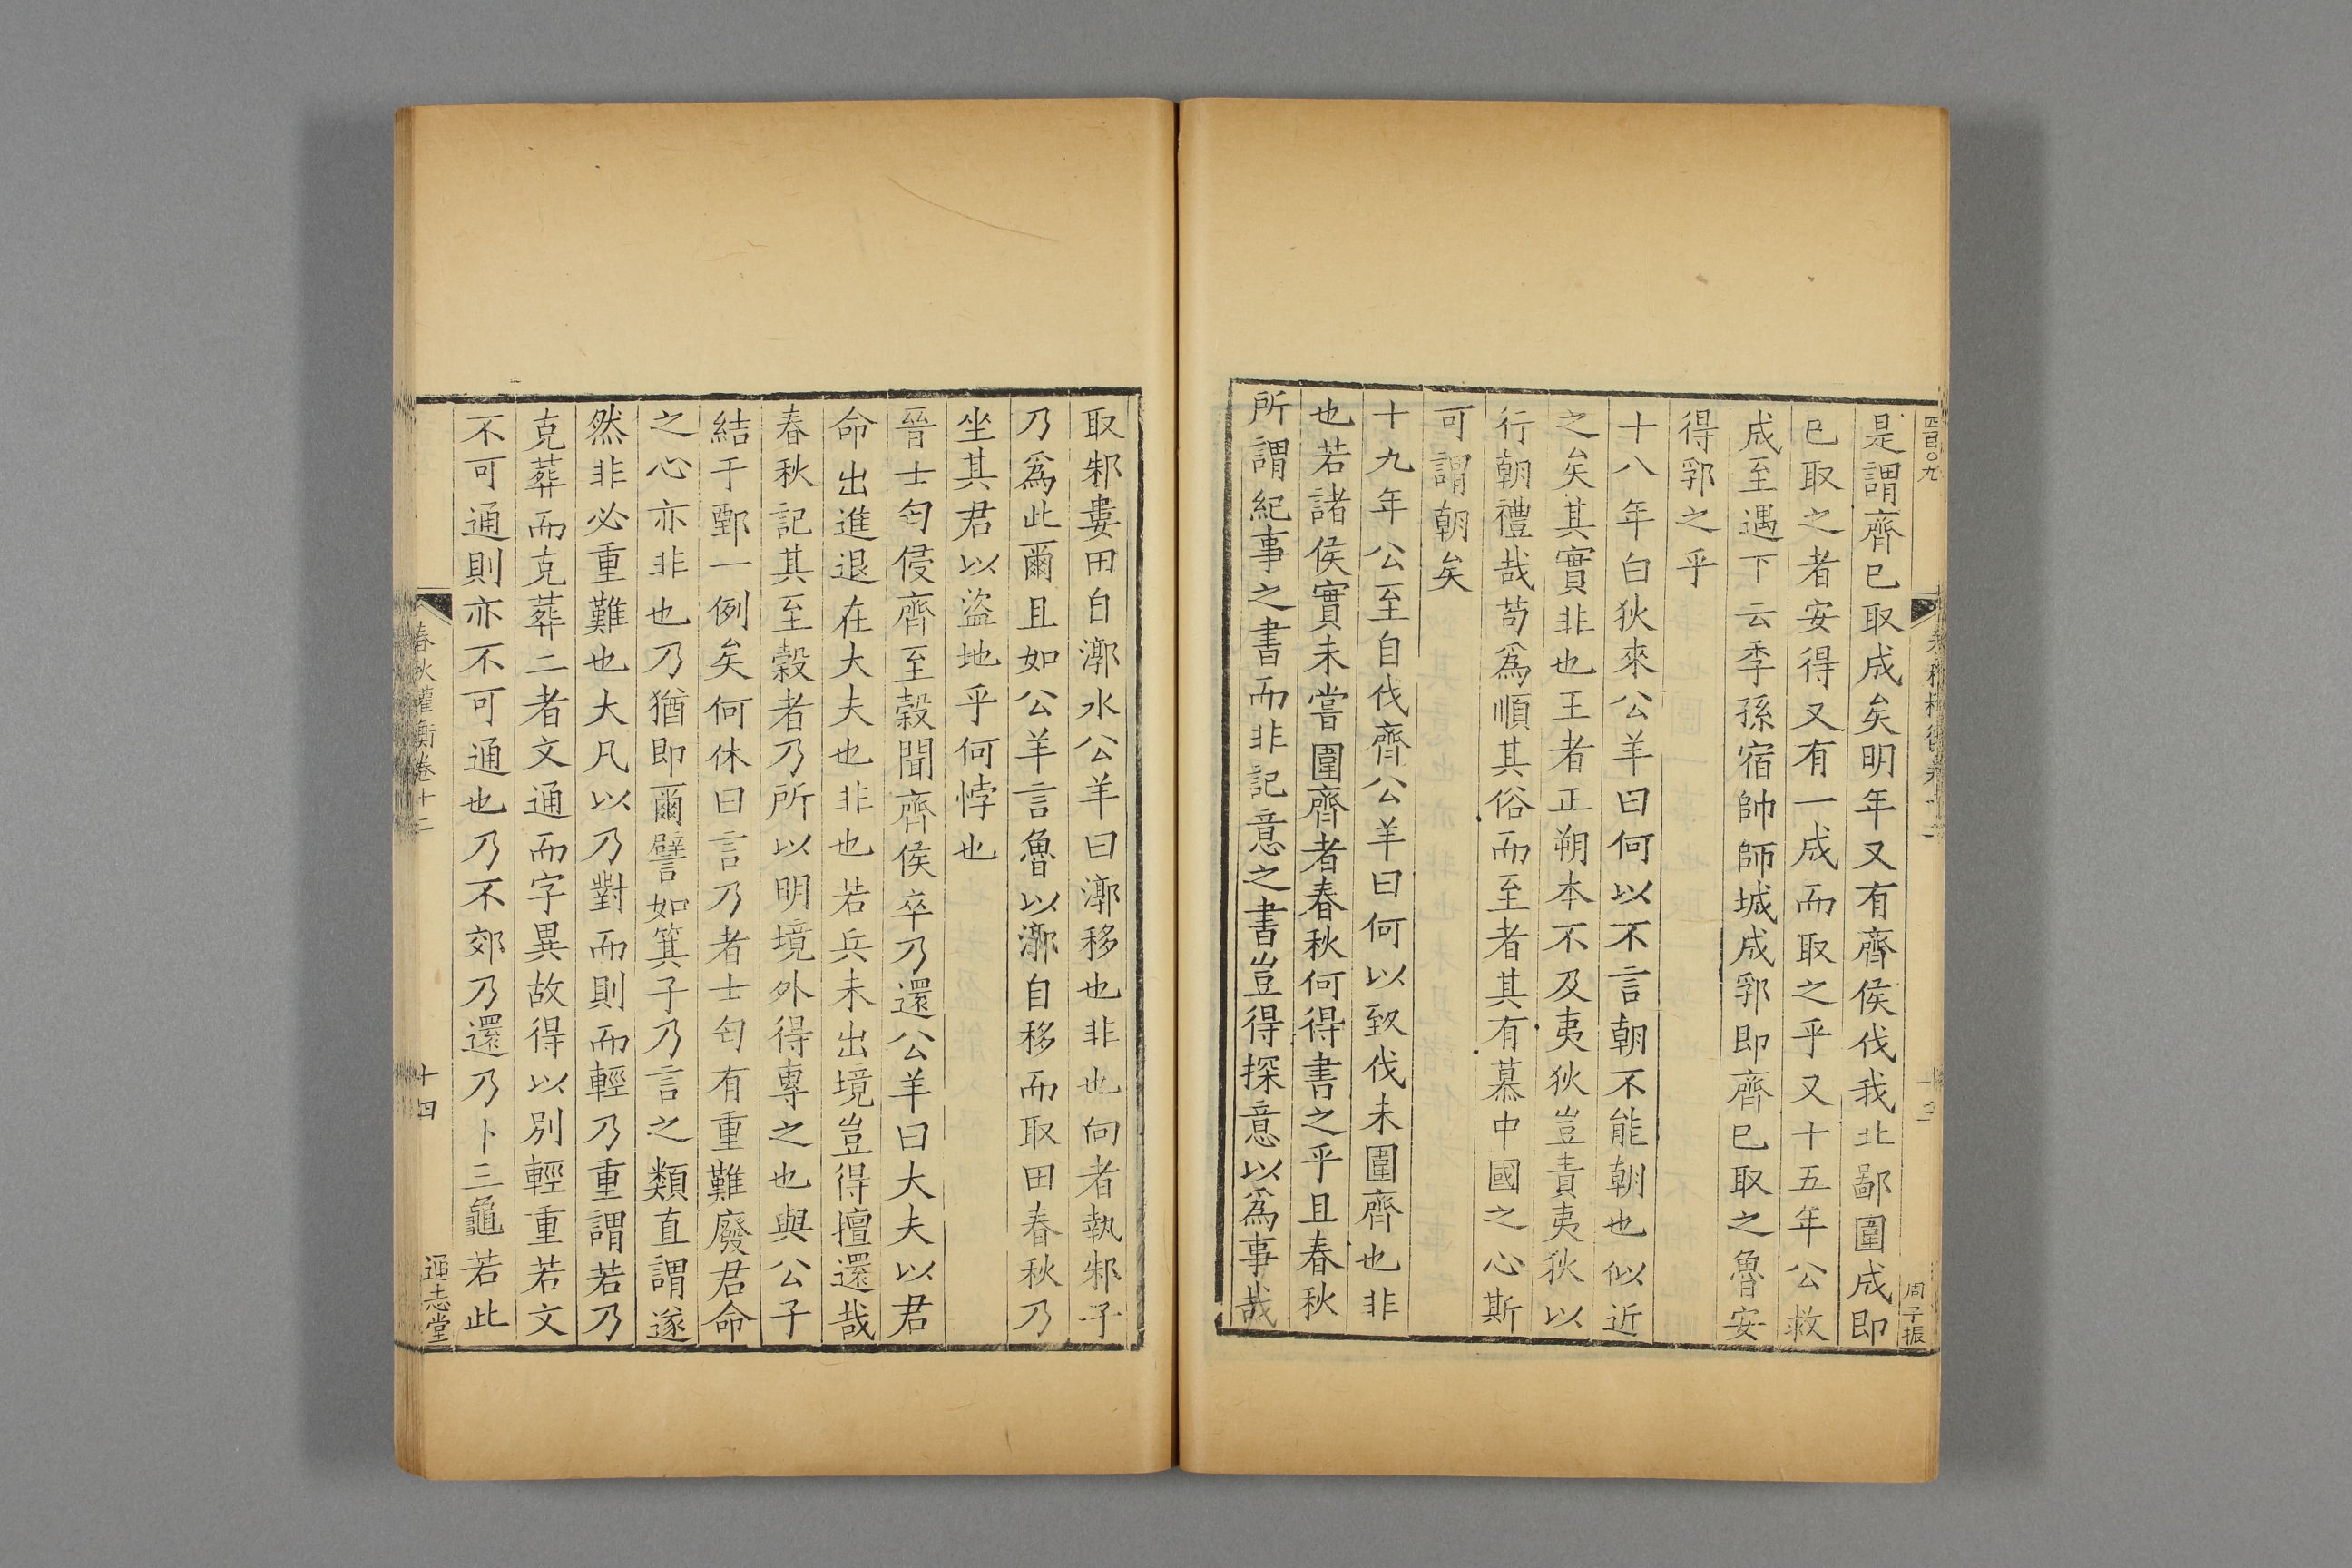 四百〇九
是謂齊已取成矣明年又有齊侯伐我北鄙圍成即
已取之者安得又有一成而取之乎又十五年公救
成至遇下云季孫宿帥師城成郛即齊已取之魯安
得郛之乎
十八年白狄來公羊曰何以不言朝不能朝也似近
之矣其實非也王者正朔本不及夷狄豈責夷狄以
行朝禮哉苟爲順其俗而至者其有慕中國之心斯
可謂朝矣
十九年公至自伐齊公羊曰何以致伐未圍齊也非
也若諸侯實未嘗圍齊者春秋何得書之乎且春秋
所謂紀事之書而非記意之書豈得探意以爲事哉
周子振
取邾婁田自漷水公羊曰漷移也非也向者執邾子
乃爲此爾且如公羊言魯以漷自移而取田春秋乃
坐其君以盜地乎何悖也
晉士匄侵齊至穀聞齊侯卒乃還公羊曰大夫以君
命出進退在大夫也非也若兵未出境豈得擅還哉
春秋記其至穀者乃所以明境外得專之也與公子
結于鄄一例矣何休曰言乃者士匄有重難廢君命
之心亦非也乃猶即爾譬如箕子乃言之類直謂遂
然非必重難也大凡以乃對而則而輕乃重謂若乃
克葬而克葬二者文通而字異故得以別輕重若文
不可通則亦不可通也乃不郊乃還乃卜三龜若此
春秋權衡卷十二
十四
通志堂